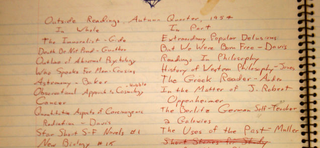 Outside Readings, Autumn Quarter, 1954
In Whole
The Immoralist - Gide
Death Be Not Proud - Gunther
Outline of Abnormal Psychology
Who Speaks For Man - Cousins
Astronomy - Baker
Observational Approach to Cosmology - Hubble
Cancer
Qualitative Aspects of
Radiation - Davis
Star Short S-F Novels #1
New Biology #15
In Part
Extraordinary Popular Delusions
But We Were Born Free - Davis
Readings In Philosophy
History of Western Philosophy -
The Greek Reader -
In the Matter of J. Robert
Oppenheimer
The German Self-Teacher
Galaxies
The Uses of the Past - Muller
Short Stories for Study